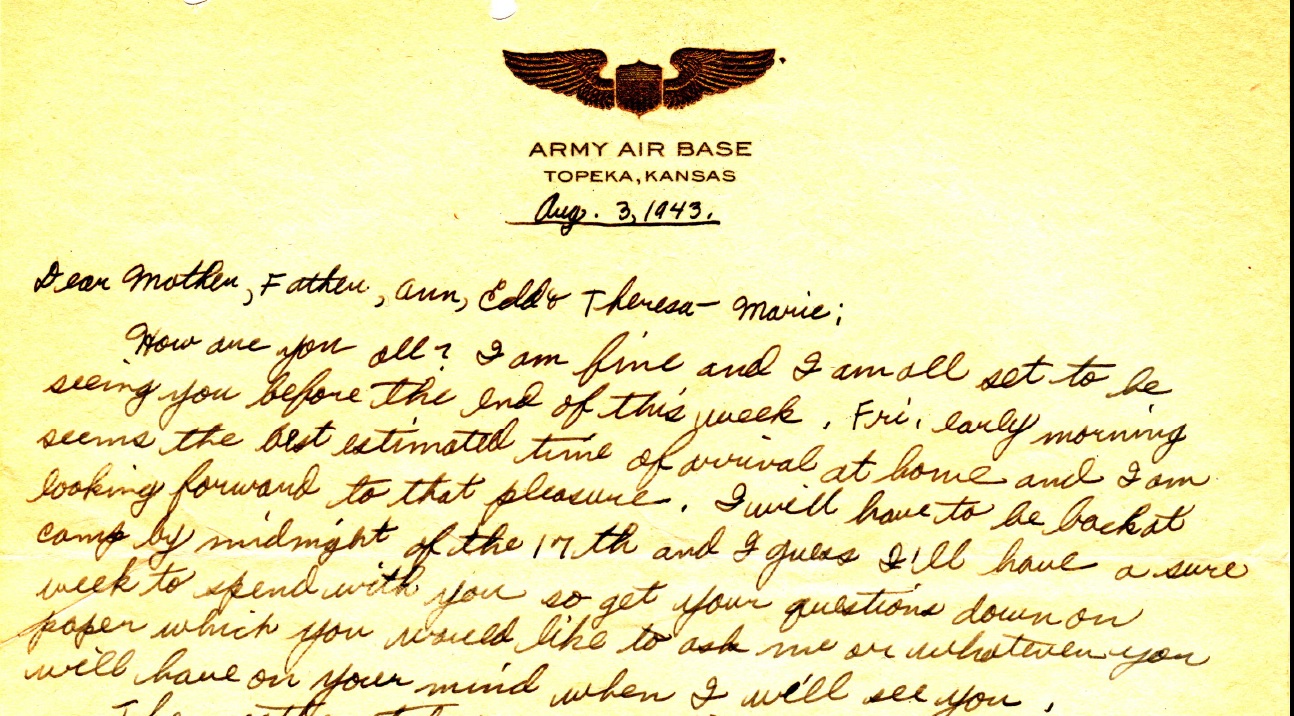 ARMY AIR BASE
TOPEKA, KANSAS
Aug. 3, 1943.
Dear Mother, Father, Ann, Edd & Theresa-Marie;
How are you all? I am fine and I am all set to be
seeing you before the end of this week. Fri. early morning
seems the best estimated time of arrival at home and I am
looking forward to that pleasure. I will have to be back at
camp by midnight of the 17th and I guess I'll have a sure
week to spend with you so get your questions down on
paper which you would like to ask me or whatever you
will have on your mind when I will see you.